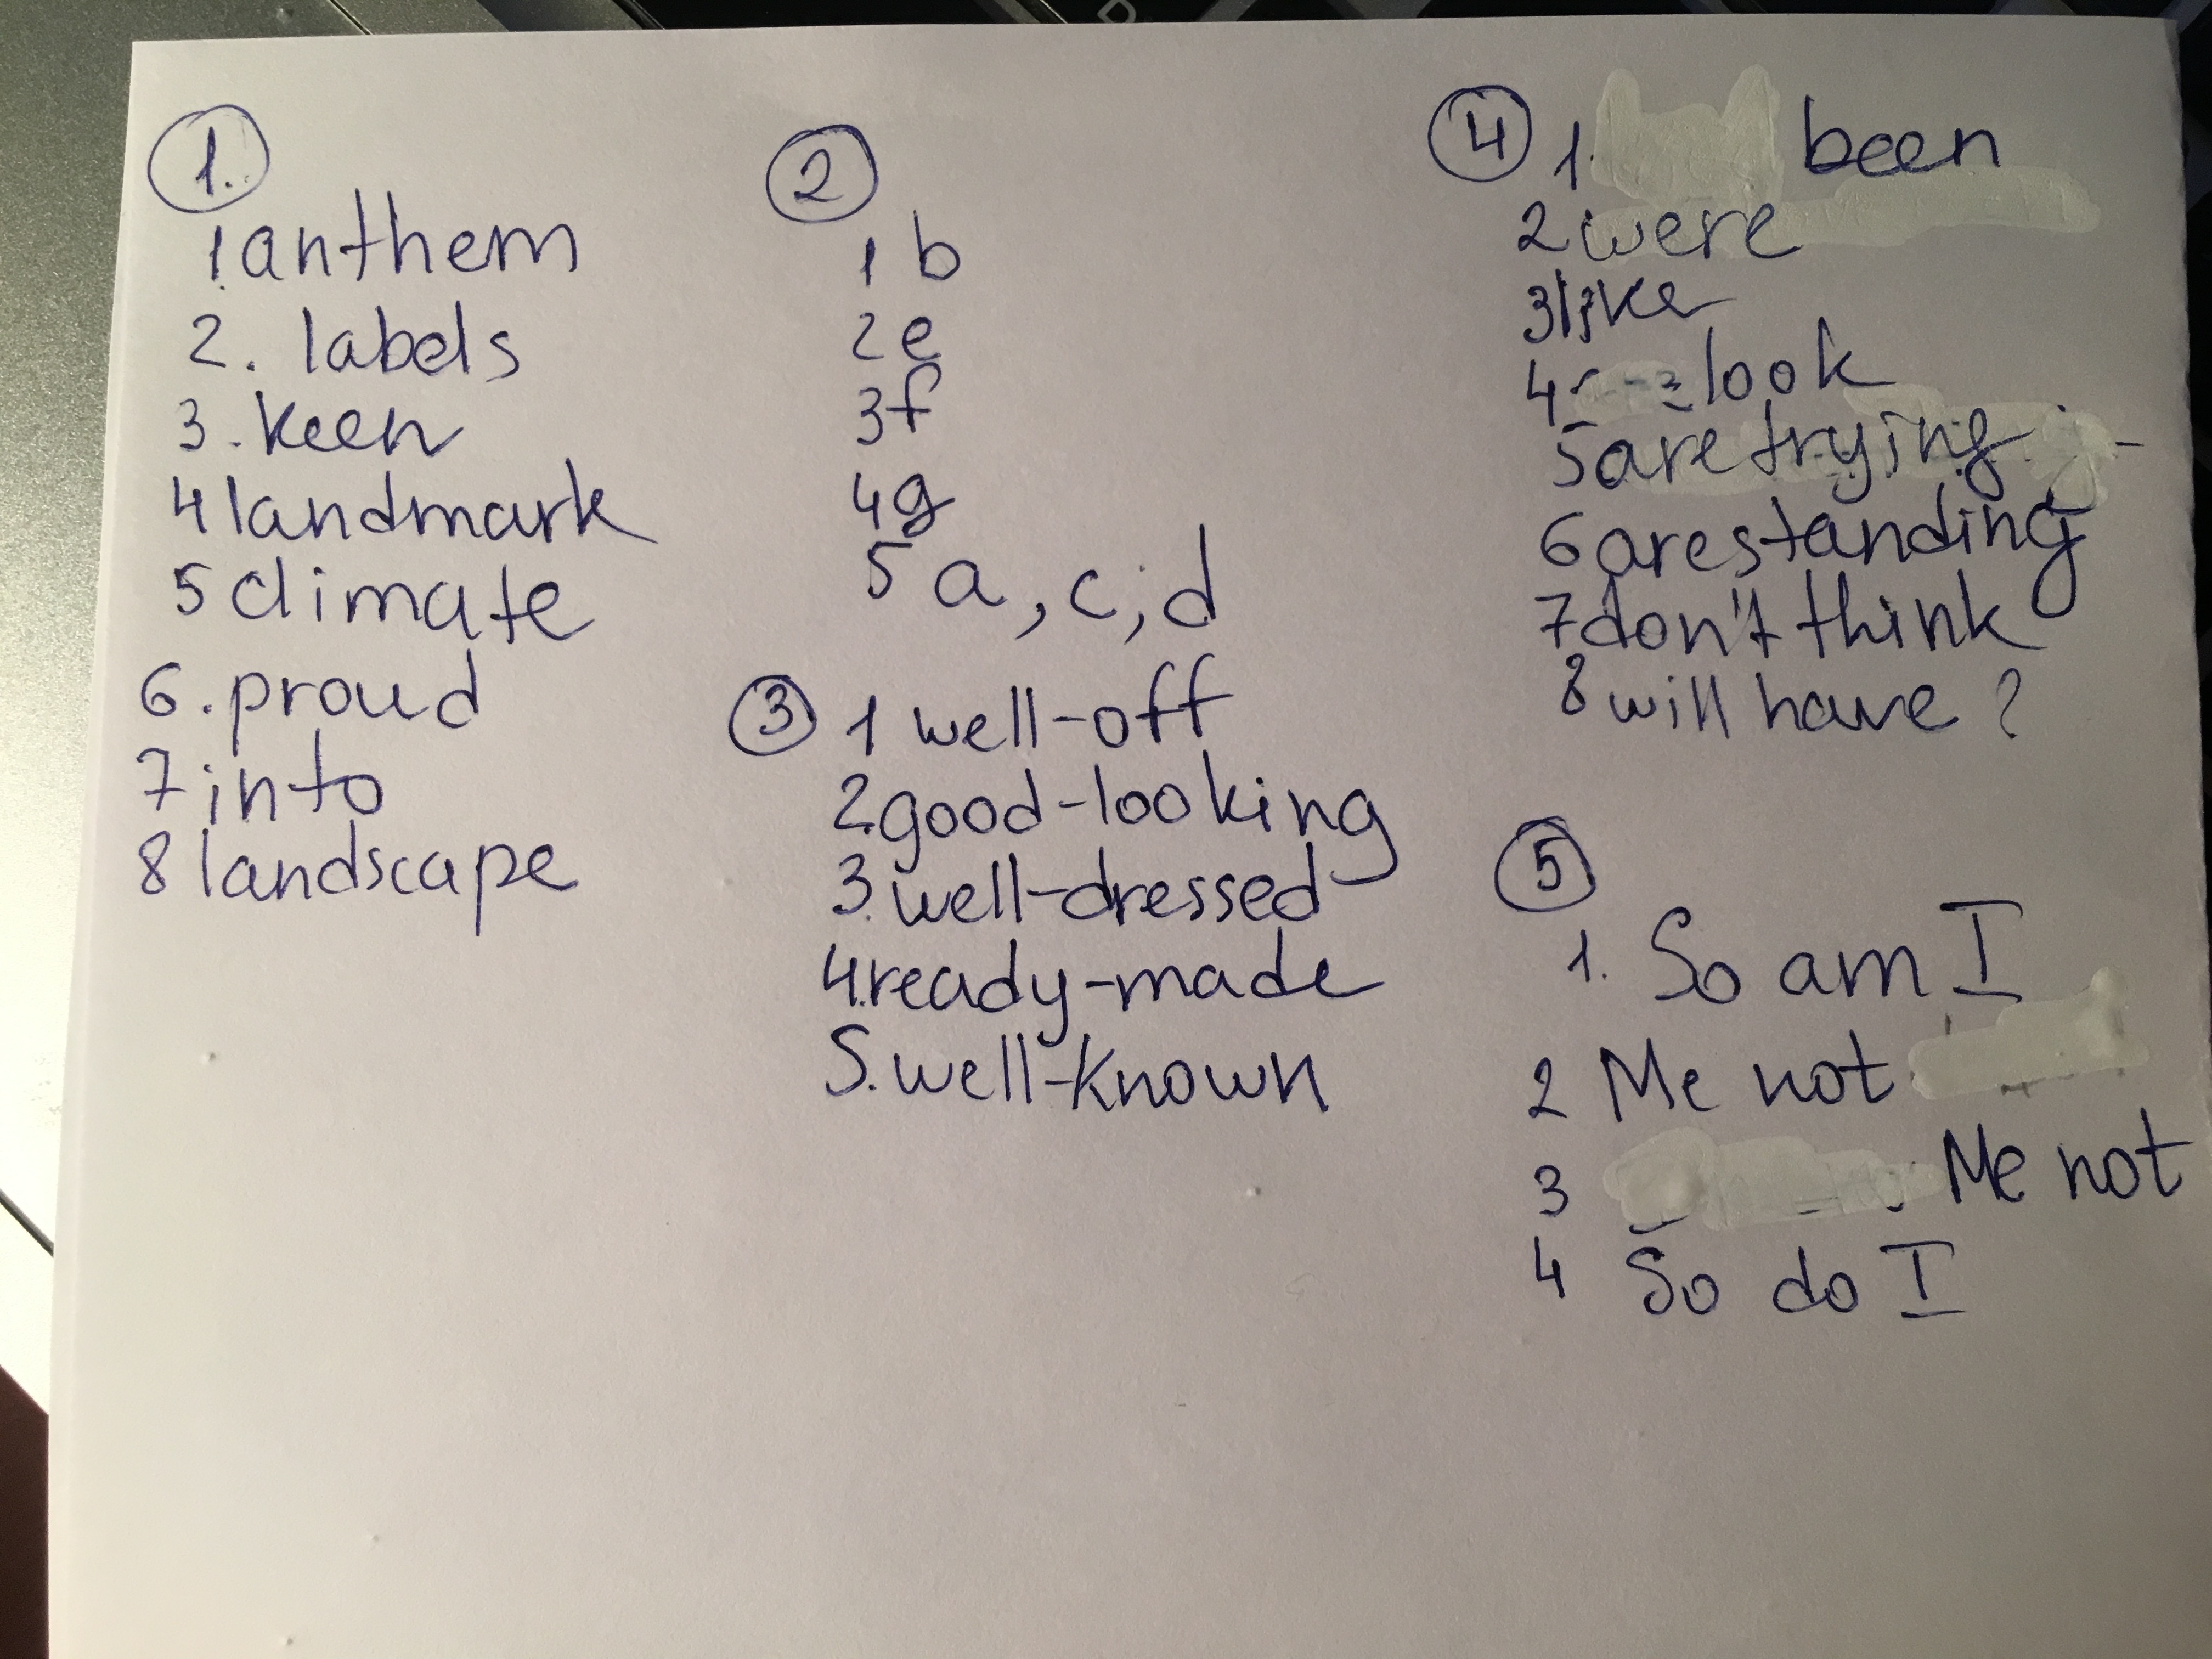 1.
1 anthem
2. labels
3. keen
4 landmark
5 climate
6. proud
7 into
8 landscape
2
1 b
2 e
3 f
4 g
5 a, c, d
3
1 well-off
2. good-looking
3. well-dressed
4. ready-made
5. well-known
4
1. been
2 were
3 like
4 look
5 are trying
6 are standing
7 don't think
8 will have ?
5
1. So am I
2 Me not
3 Me not
4 So do I